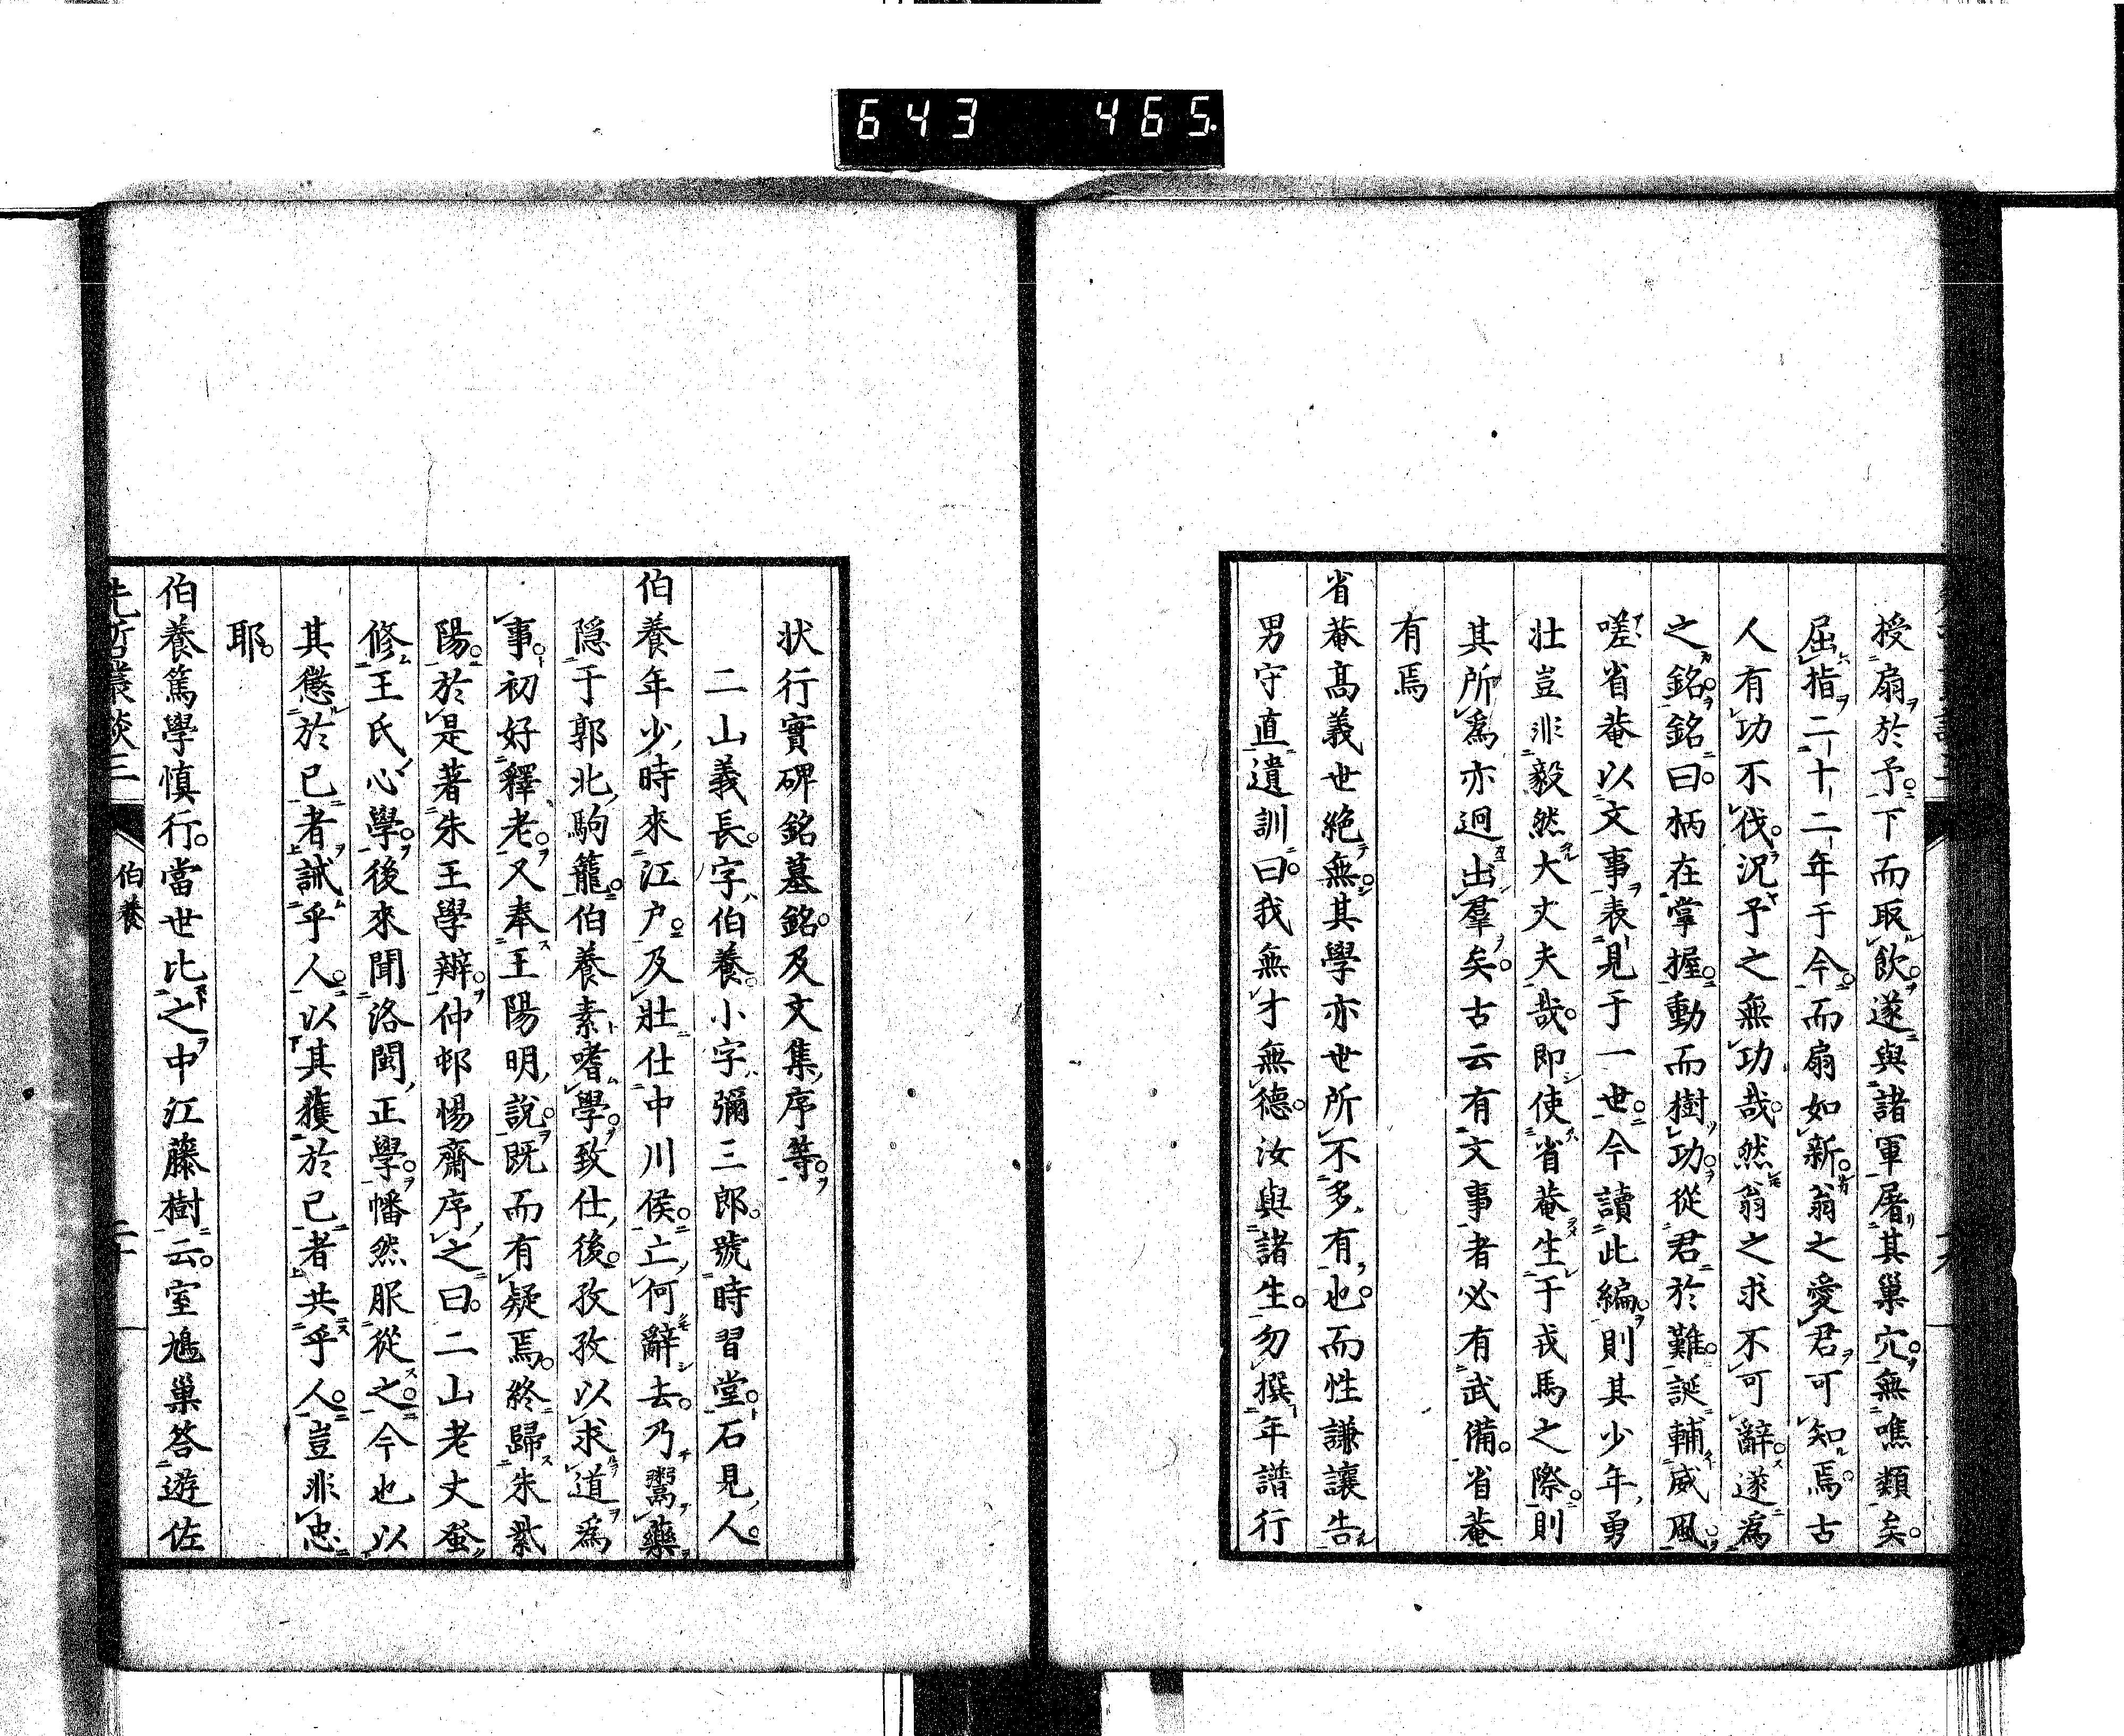 643 465
授扇於予下而取飲遂與諸軍屠其巢穴無噍類矣
屈指二十二年于今而扇如新翁之愛君可知焉古
人有功不伐況予之無功哉然翁之求不可辭遂爲
之銘銘曰柄在掌握動而樹功從君於難誕輔威風
嗟省菴以文事表見于一世今讀此編則其少年勇
壯豈非毅然大丈夫哉即使省菴生于戎馬之際則
其所爲亦迥出羣矣古云有文事者必有武備省菴
有焉
省菴高義世絶無其學亦世所不多有也而性謙讓告
男守直遺訓曰我無才無德汝與諸生勿撰年譜行
状行實碑銘墓銘及文集序等
二山義長字伯養小字彌三郎號時習堂石見人
伯養年少時來江戸及壯仕中川侯亡何辭去乃鬻藥
隱于郭北駒籠伯養素嗜學致仕後孜孜以求道爲
事初好釋老又奉王陽明說既而有疑焉終歸朱紫
陽於是著朱王學辨仲邨惕齋序之曰二山老丈蚤
修王氏心學後來聞洛閩正學幡然服從之今也以
其懲於已者誡乎人以其獲於已者共乎人豈非忠
耶
伯養篤學慎行當世比之中江藤樹云室鳩巢答遊佐
先哲叢談三 伯養 二十